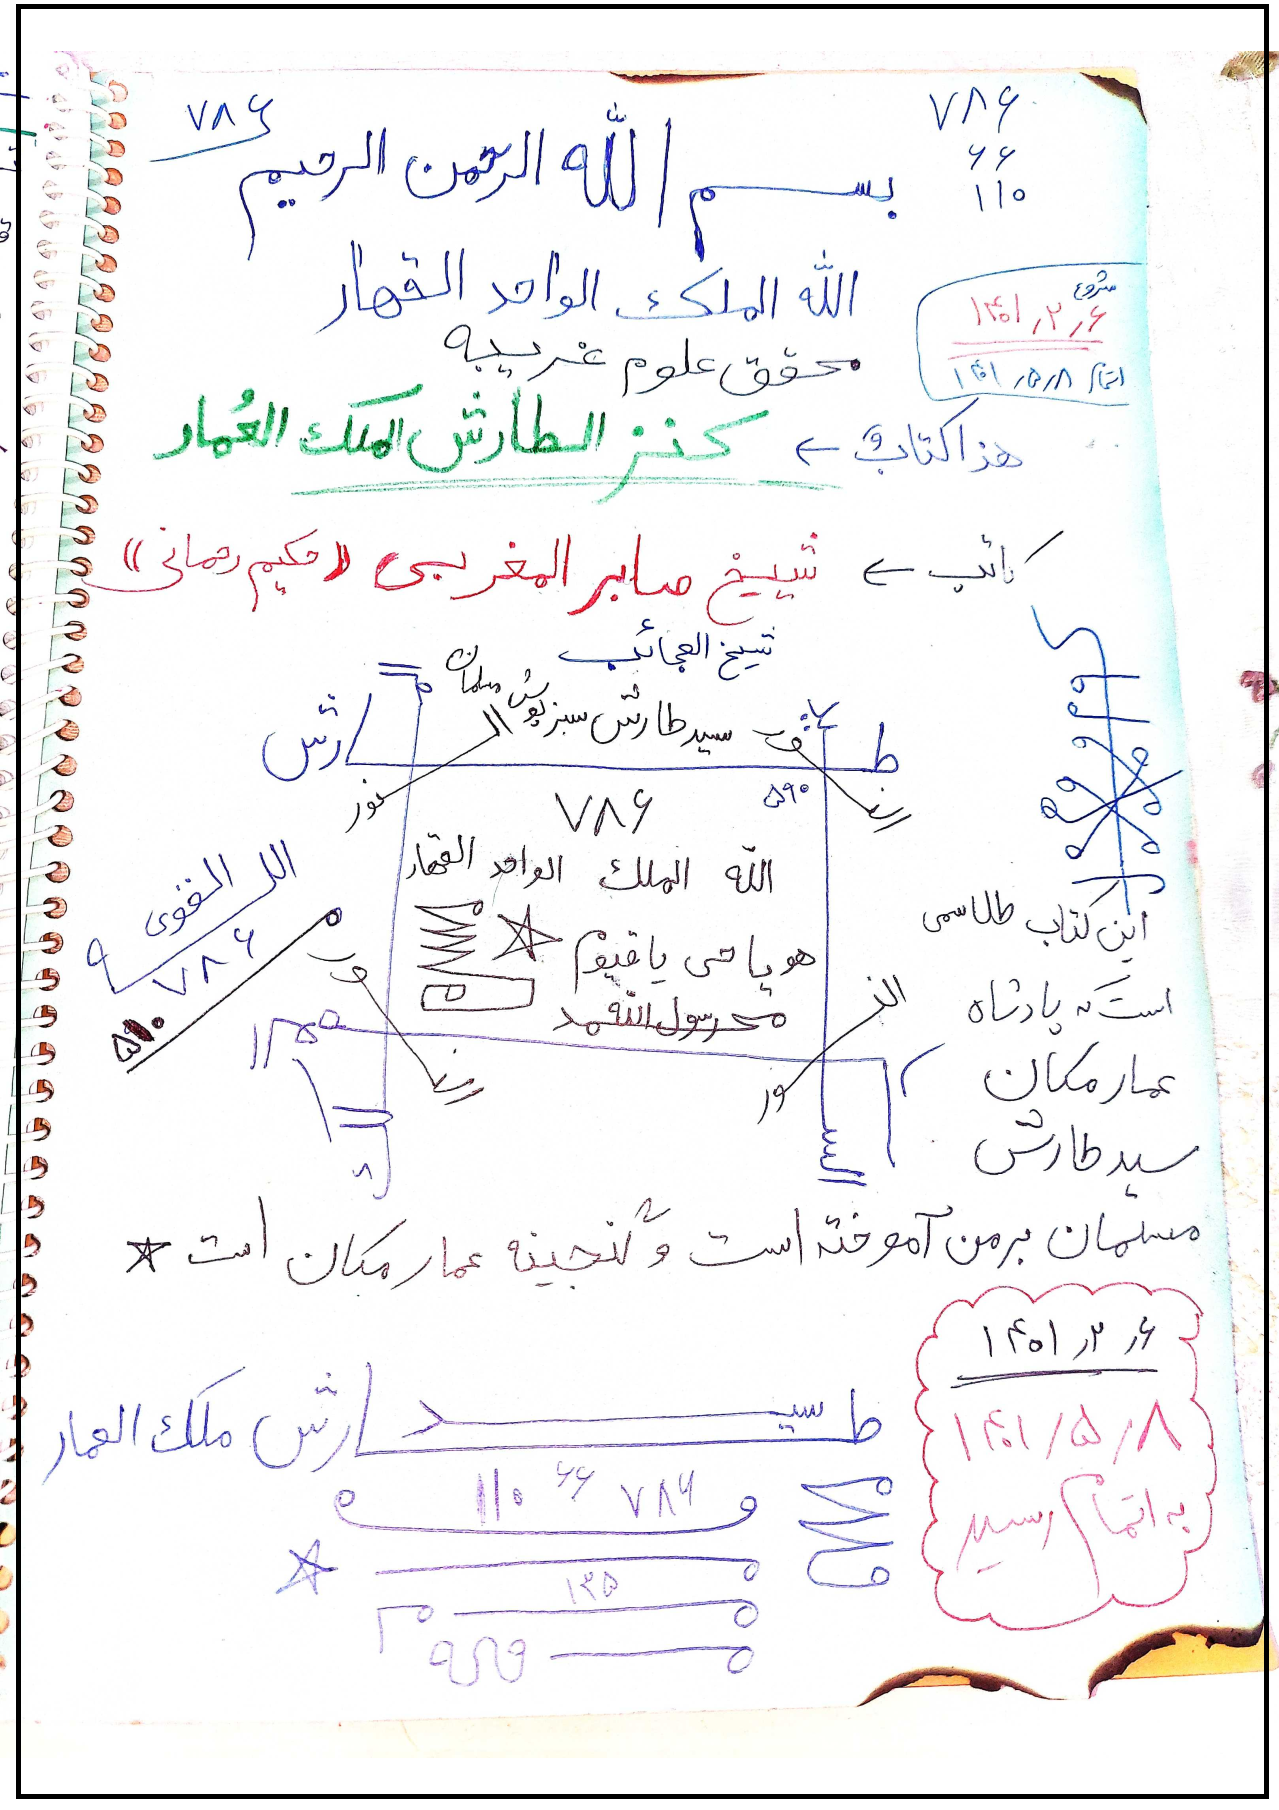 ۷۸۶
۷۸۶
۶۶
۱۱۰
بسم الله الرحمن الرحیم
الله الملک الواحد القهار
محقق علوم غریبه
شروع
۱۴۰۱٫۲٫۶
اتمام ۱۴۰۱٫۵٫۸
هذا کتاب ←
کنز الطارش الملک العُمار
کاتب ← شیخ صابر المغربی «حکیم رحمانی»
شیخ العجائب
سید طارش سبزپوش مسلمان
ط
ارش
نور
۵۹۰
۷۸۶
الله الملک الواحد القهار
هو یا حی یا قیوم
محمد رسول الله
القوی
۷۸۶
۵۹۰
این کتاب طلاسمی
است که پادشاه
عمار مکان
سید طارش
مسلمان بر من آموخته است و گنجینه عمار مکان است
۱۴۰۱٫۲٫۶
۱۴۰۱/۵/۸
به اتمام رسید
ط سید ارش ملک العمار
۷۸۶ ۶۶ ۱۱۰
۱۳۵